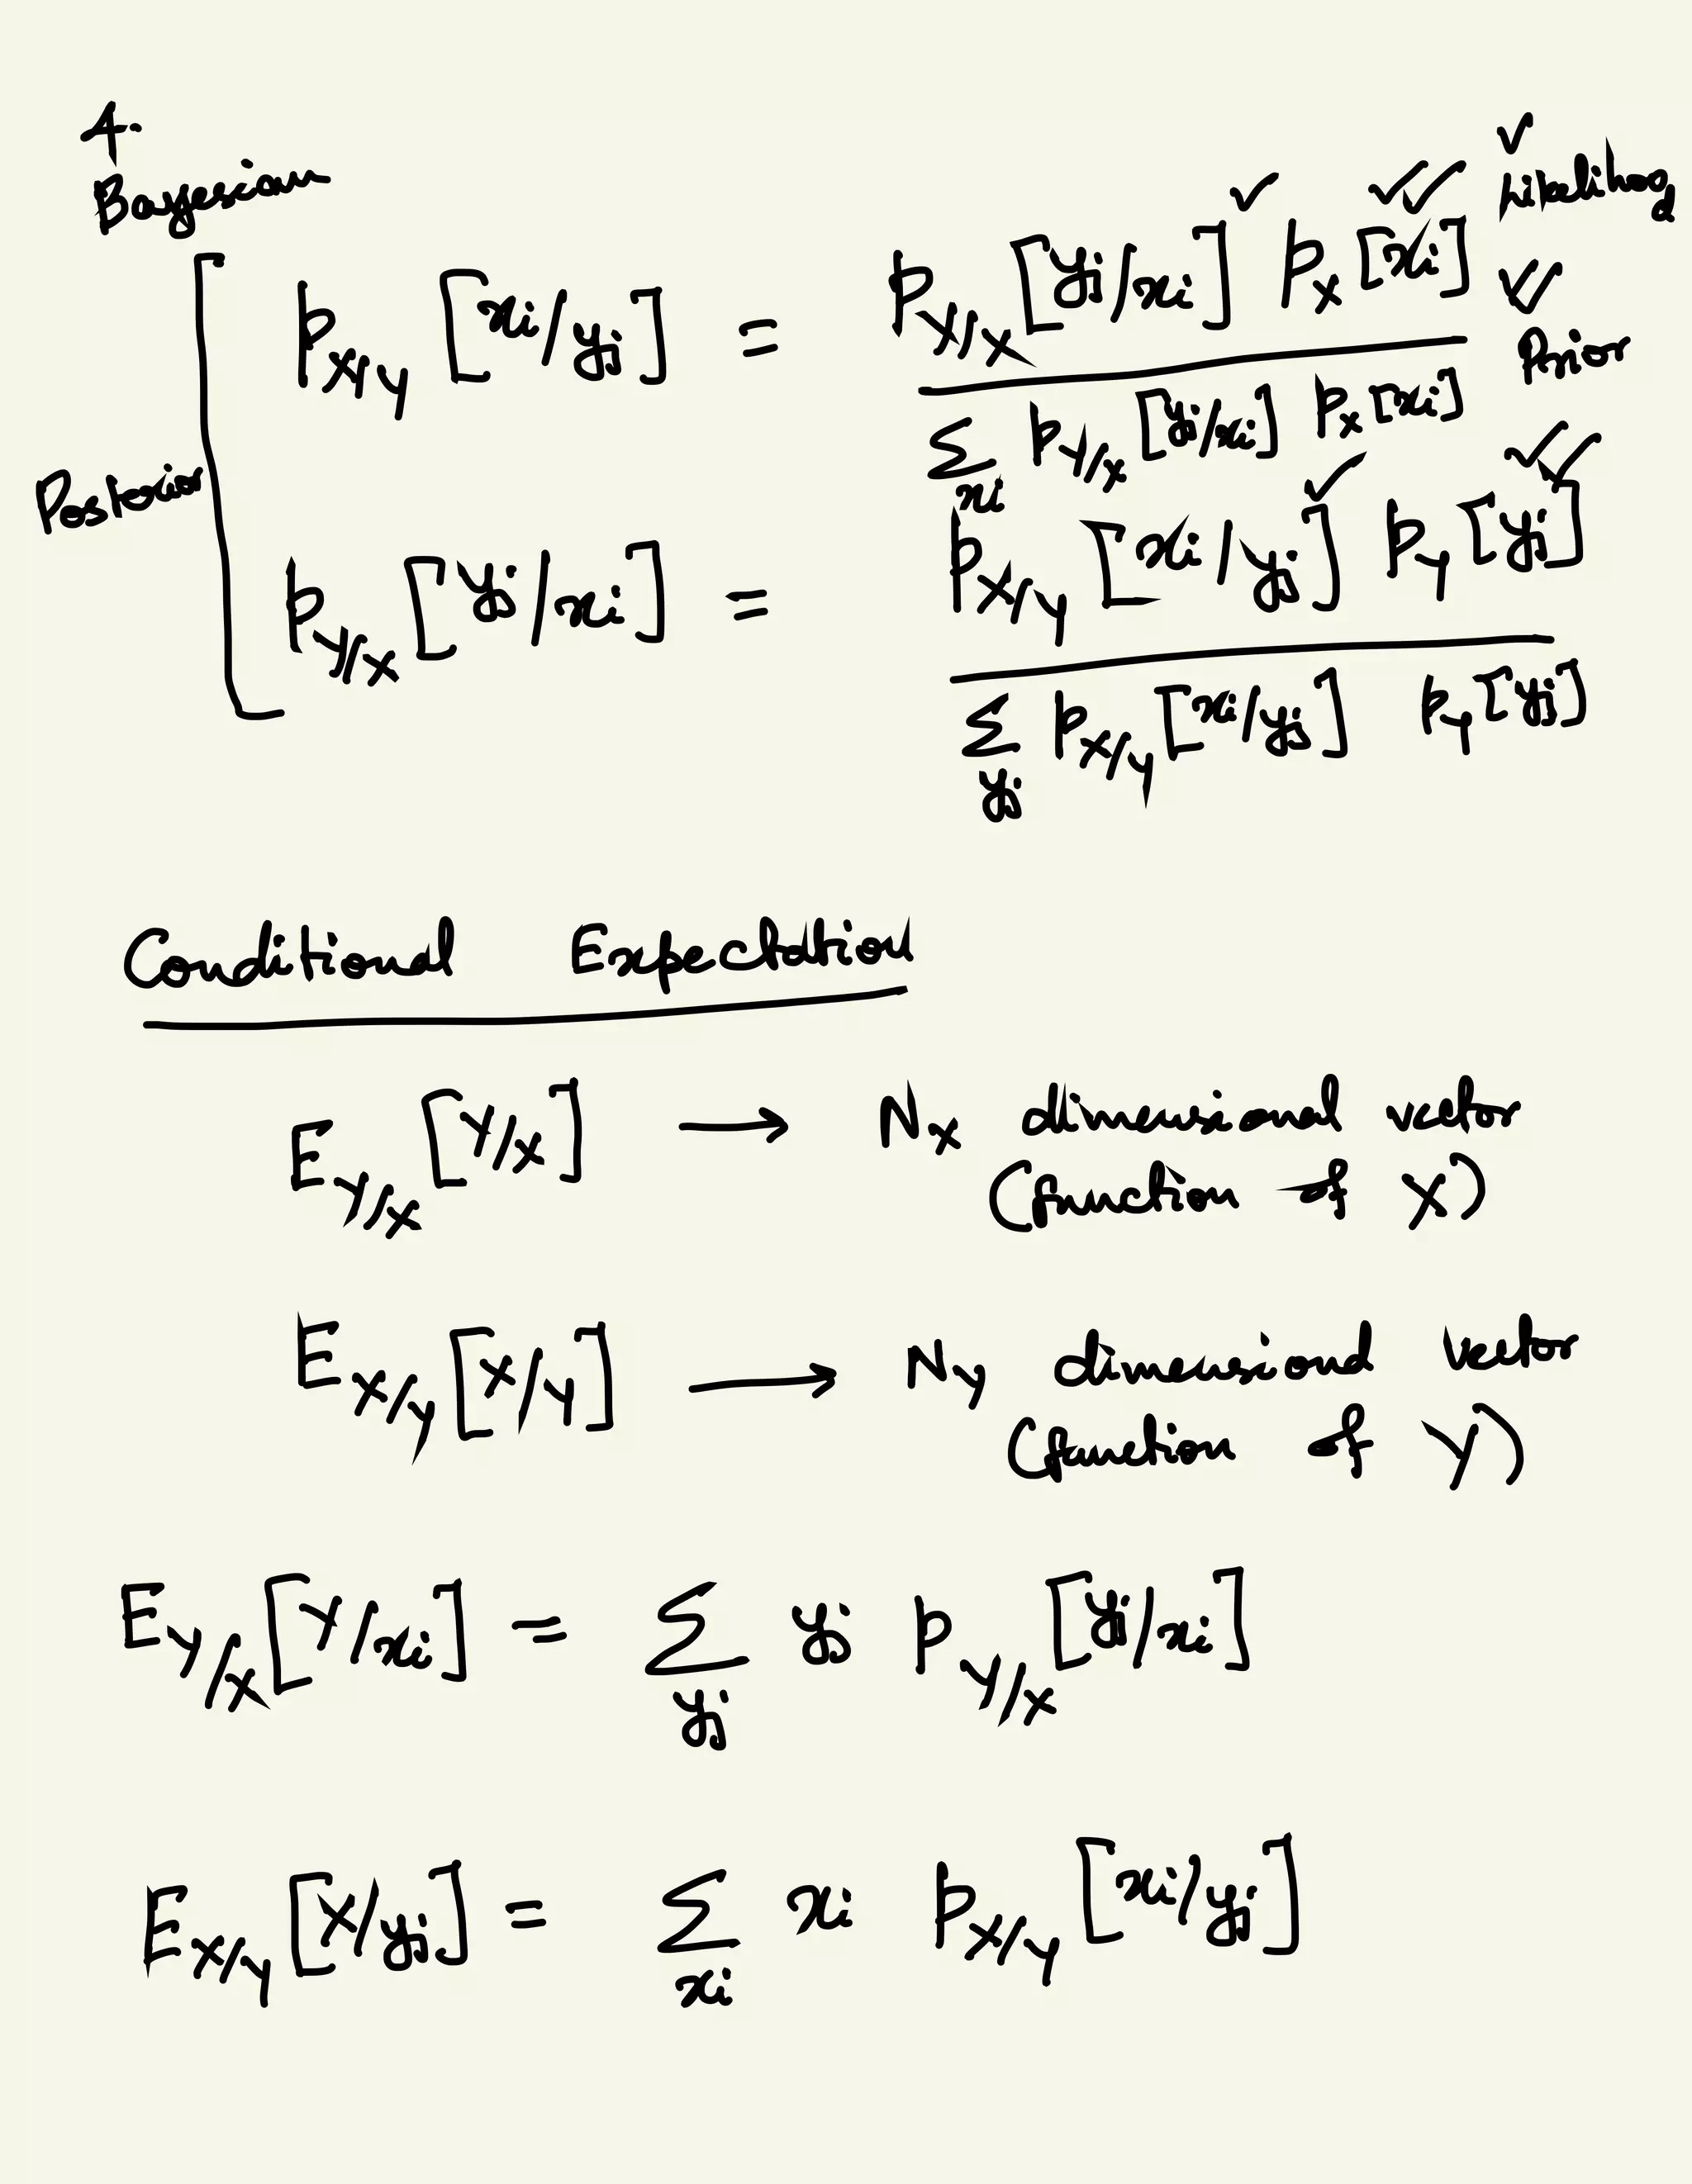 4.
Bayesian
Posterior
p_{X/Y} [x_i/y_j] = \frac{p_{Y/X} [y_j/x_i] ✓ p_X [x_i] ✓✓}{\sum_{x_i} p_{Y/X} [y_j/x_i] p_X [x_i]}
✓ Likelihood
✓✓ Prior
p_{Y/X} [y_j/x_i] = \frac{p_{X/Y} [x_i/y_j] ✓ p_Y [y_j] ✓✓}{\sum_{y_j} p_{X/Y} [x_i/y_j] p_Y [y_j]}
Conditional Expectation
E_{Y/X} [Y/X] → N_X dimensional vector
(function of X)
E_{X/Y} [X/Y] → N_Y dimensional vector
(function of Y)
E_{Y/X} [Y/x_i] = \sum_{y_j} y_j p_{Y/X} [y_j/x_i]
E_{X/Y} [X/y_j] = \sum_{x_i} x_i p_{X/Y} [x_i/y_j]